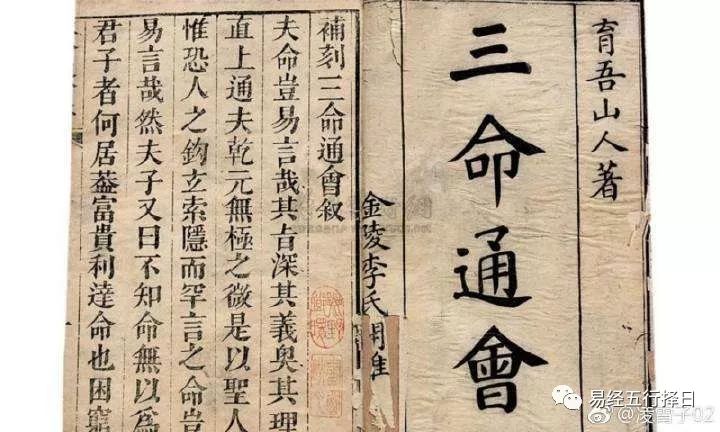 育吾山人著
三命通會
金陵李氏
補刻三命通會叙
夫命豈易言哉其旨深其義奥其理
直上通夫乾元無極之微是以聖人
惟恐人之鈎立索隱而罕言之命豈
易言哉然夫子又曰不知命無以爲
君子者何居葢富貴利達命也困窮
易经五行择日
凌霄子02